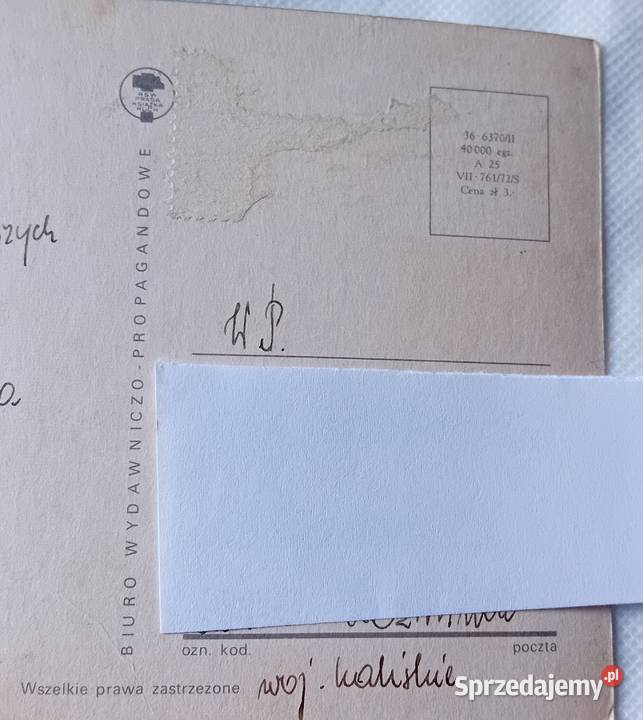 RSW
PRASA
KSIĄŻKA
RUCH
BIURO WYDAWNICZO-PROPAGANDOWE
36-6370/II
40 000 egz.
A 25
VII-761/72/S
Cena zł 3.-
szych
W P.
ozn. kod.
poczta
Wszelkie prawa zastrzeżone
woj. kaliskie
Sprzedajemy.pl